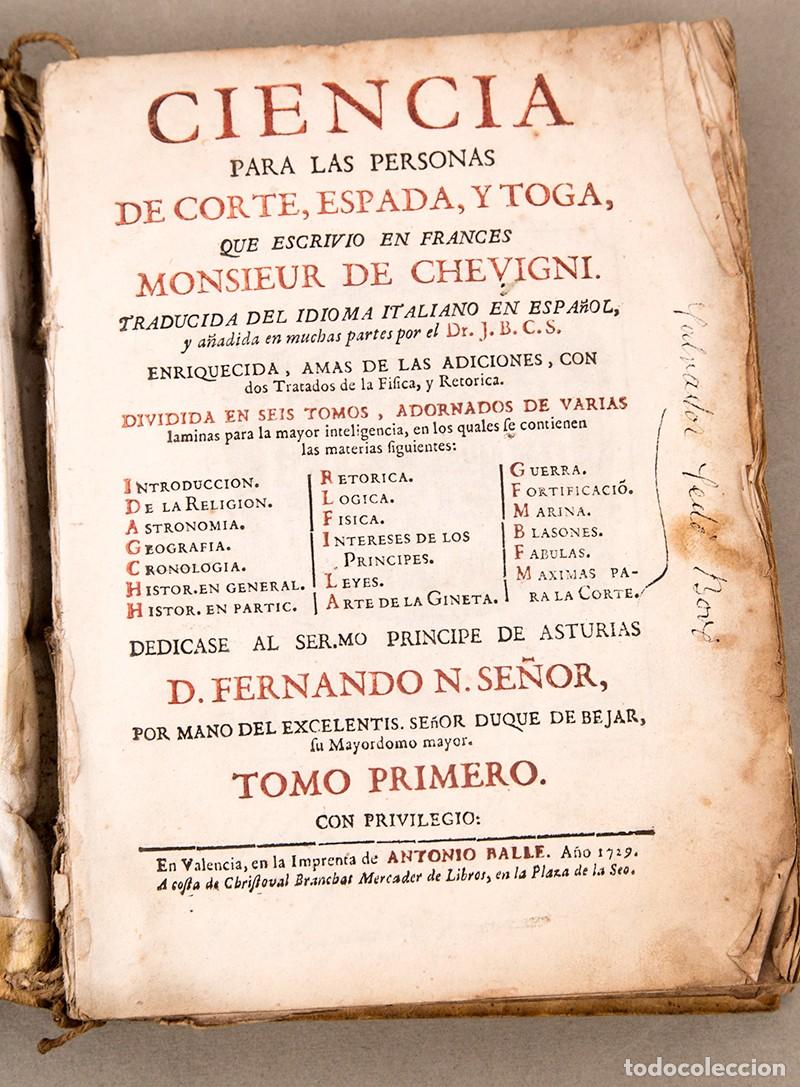 CIENCIA
PARA LAS PERSONAS
DE CORTE, ESPADA, Y TOGA,
QUE ESCRIVIO EN FRANCES
MONSIEUR DE CHEVIGNI.
TRADUCIDA DEL IDIOMA ITALIANO EN ESPAñOL,
y añadida en muchas partes por el Dr. J. B. C. S.
ENRIQUECIDA, AMAS DE LAS ADICIONES, CON
dos Tratados de la Fiſica, y Retorica.
DIVIDIDA EN SEIS TOMOS, ADORNADOS DE VARIAS
laminas para la mayor inteligencia, en los quales ſe contienen
las materias ſiguientes:
INTRODUCCION.
DE LA RELIGION.
ASTRONOMIA.
GEOGRAFIA.
CRONOLOGIA.
HISTOR. EN GENERAL.
HISTOR. EN PARTIC.
RETORICA.
LOGICA.
FISICA.
INTERESES DE LOS
PRINCIPES.
LEYES.
ARTE DE LA GINETA.
GUERRA.
FORTIFICACIÕ.
MARINA.
BLASONES.
FABULAS.
MAXIMAS PA-
RA LA CORTE.
DEDICASE AL SER.MO PRINCIPE DE ASTURIAS
D. FERNANDO N. SEÑOR,
POR MANO DEL EXCELENTIS. SEñOR DUQUE DE BEJAR,
ſu Mayordomo mayor.
TOMO PRIMERO.
CON PRIVILEGIO:
En Valencia, en la Imprenta de ANTONIO BALLE. Año 1729.
A coſta de Chriſtoval Branchat Mercader de Libros, en la Plaza de la Seo.
todocoleccion